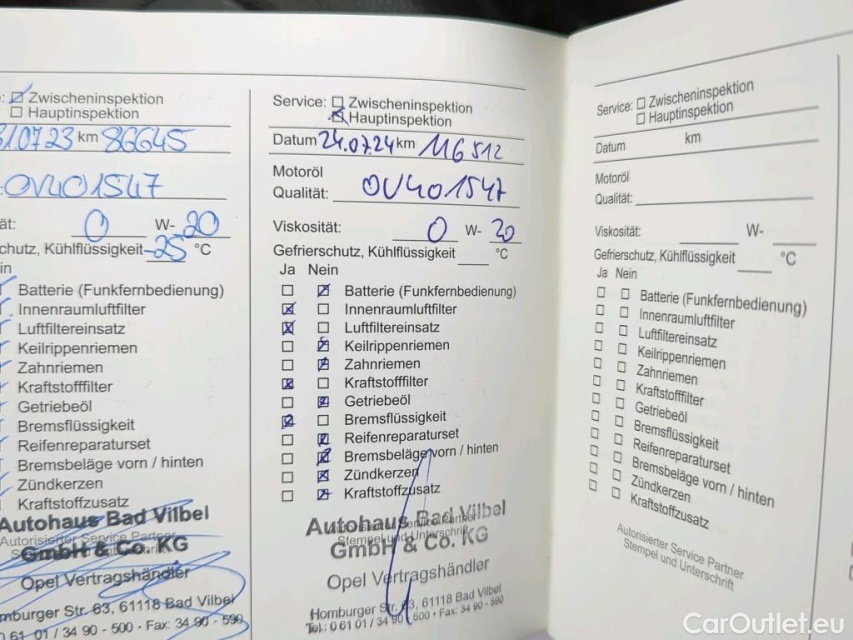 : Zwischeninspektion
Hauptinspektion
310723 km 86645
OV401547
ät: 0 W- 20
chutz, Kühlflüssigkeit -25 °C
in
Batterie (Funkfernbedienung)
Innenraumluftfilter
Luftfiltereinsatz
Keilrippenriemen
Zahnriemen
Kraftstofffilter
Getriebeöl
Bremsflüssigkeit
Reifenreparaturset
Bremsbeläge vorn / hinten
Zündkerzen
Kraftstoffzusatz
Autohaus Bad Vilbel
Autorisierter Service Partner
GmbH & Co. KG
Opel Vertragshändler
mburger Str. 63, 61118 Bad Vilbel
0 61 01 / 34 90 - 500 · Fax: 34 90 - 590
Service: Zwischeninspektion
Hauptinspektion
Datum 24.07.24 km 116512
Motoröl
Qualität: OV401547
Viskosität: 0 W- 20
Gefrierschutz, Kühlflüssigkeit °C
Ja Nein
Batterie (Funkfernbedienung)
Innenraumluftfilter
Luftfiltereinsatz
Keilrippenriemen
Zahnriemen
Kraftstofffilter
Getriebeöl
Bremsflüssigkeit
Reifenreparaturset
Bremsbeläge vorn / hinten
Zündkerzen
Kraftstoffzusatz
Autohaus Bad Vilbel
Autorisierter Service Partner
Stempel und Unterschrift
GmbH & Co. KG
Opel Vertragshändler
Homburger Str. 63, 61118 Bad Vilbel
Tel.: 0 61 01 / 34 90 - 500 · Fax: 34 90 - 590
Service: Zwischeninspektion
Hauptinspektion
Datum km
Motoröl
Qualität:
Viskosität: W-
Gefrierschutz, Kühlflüssigkeit °C
Ja Nein
Batterie (Funkfernbedienung)
Innenraumluftfilter
Luftfiltereinsatz
Keilrippenriemen
Zahnriemen
Kraftstofffilter
Getriebeöl
Bremsflüssigkeit
Reifenreparaturset
Bremsbeläge vorn / hinten
Zündkerzen
Kraftstoffzusatz
Autorisierter Service Partner
Stempel und Unterschrift
CarOutlet.eu